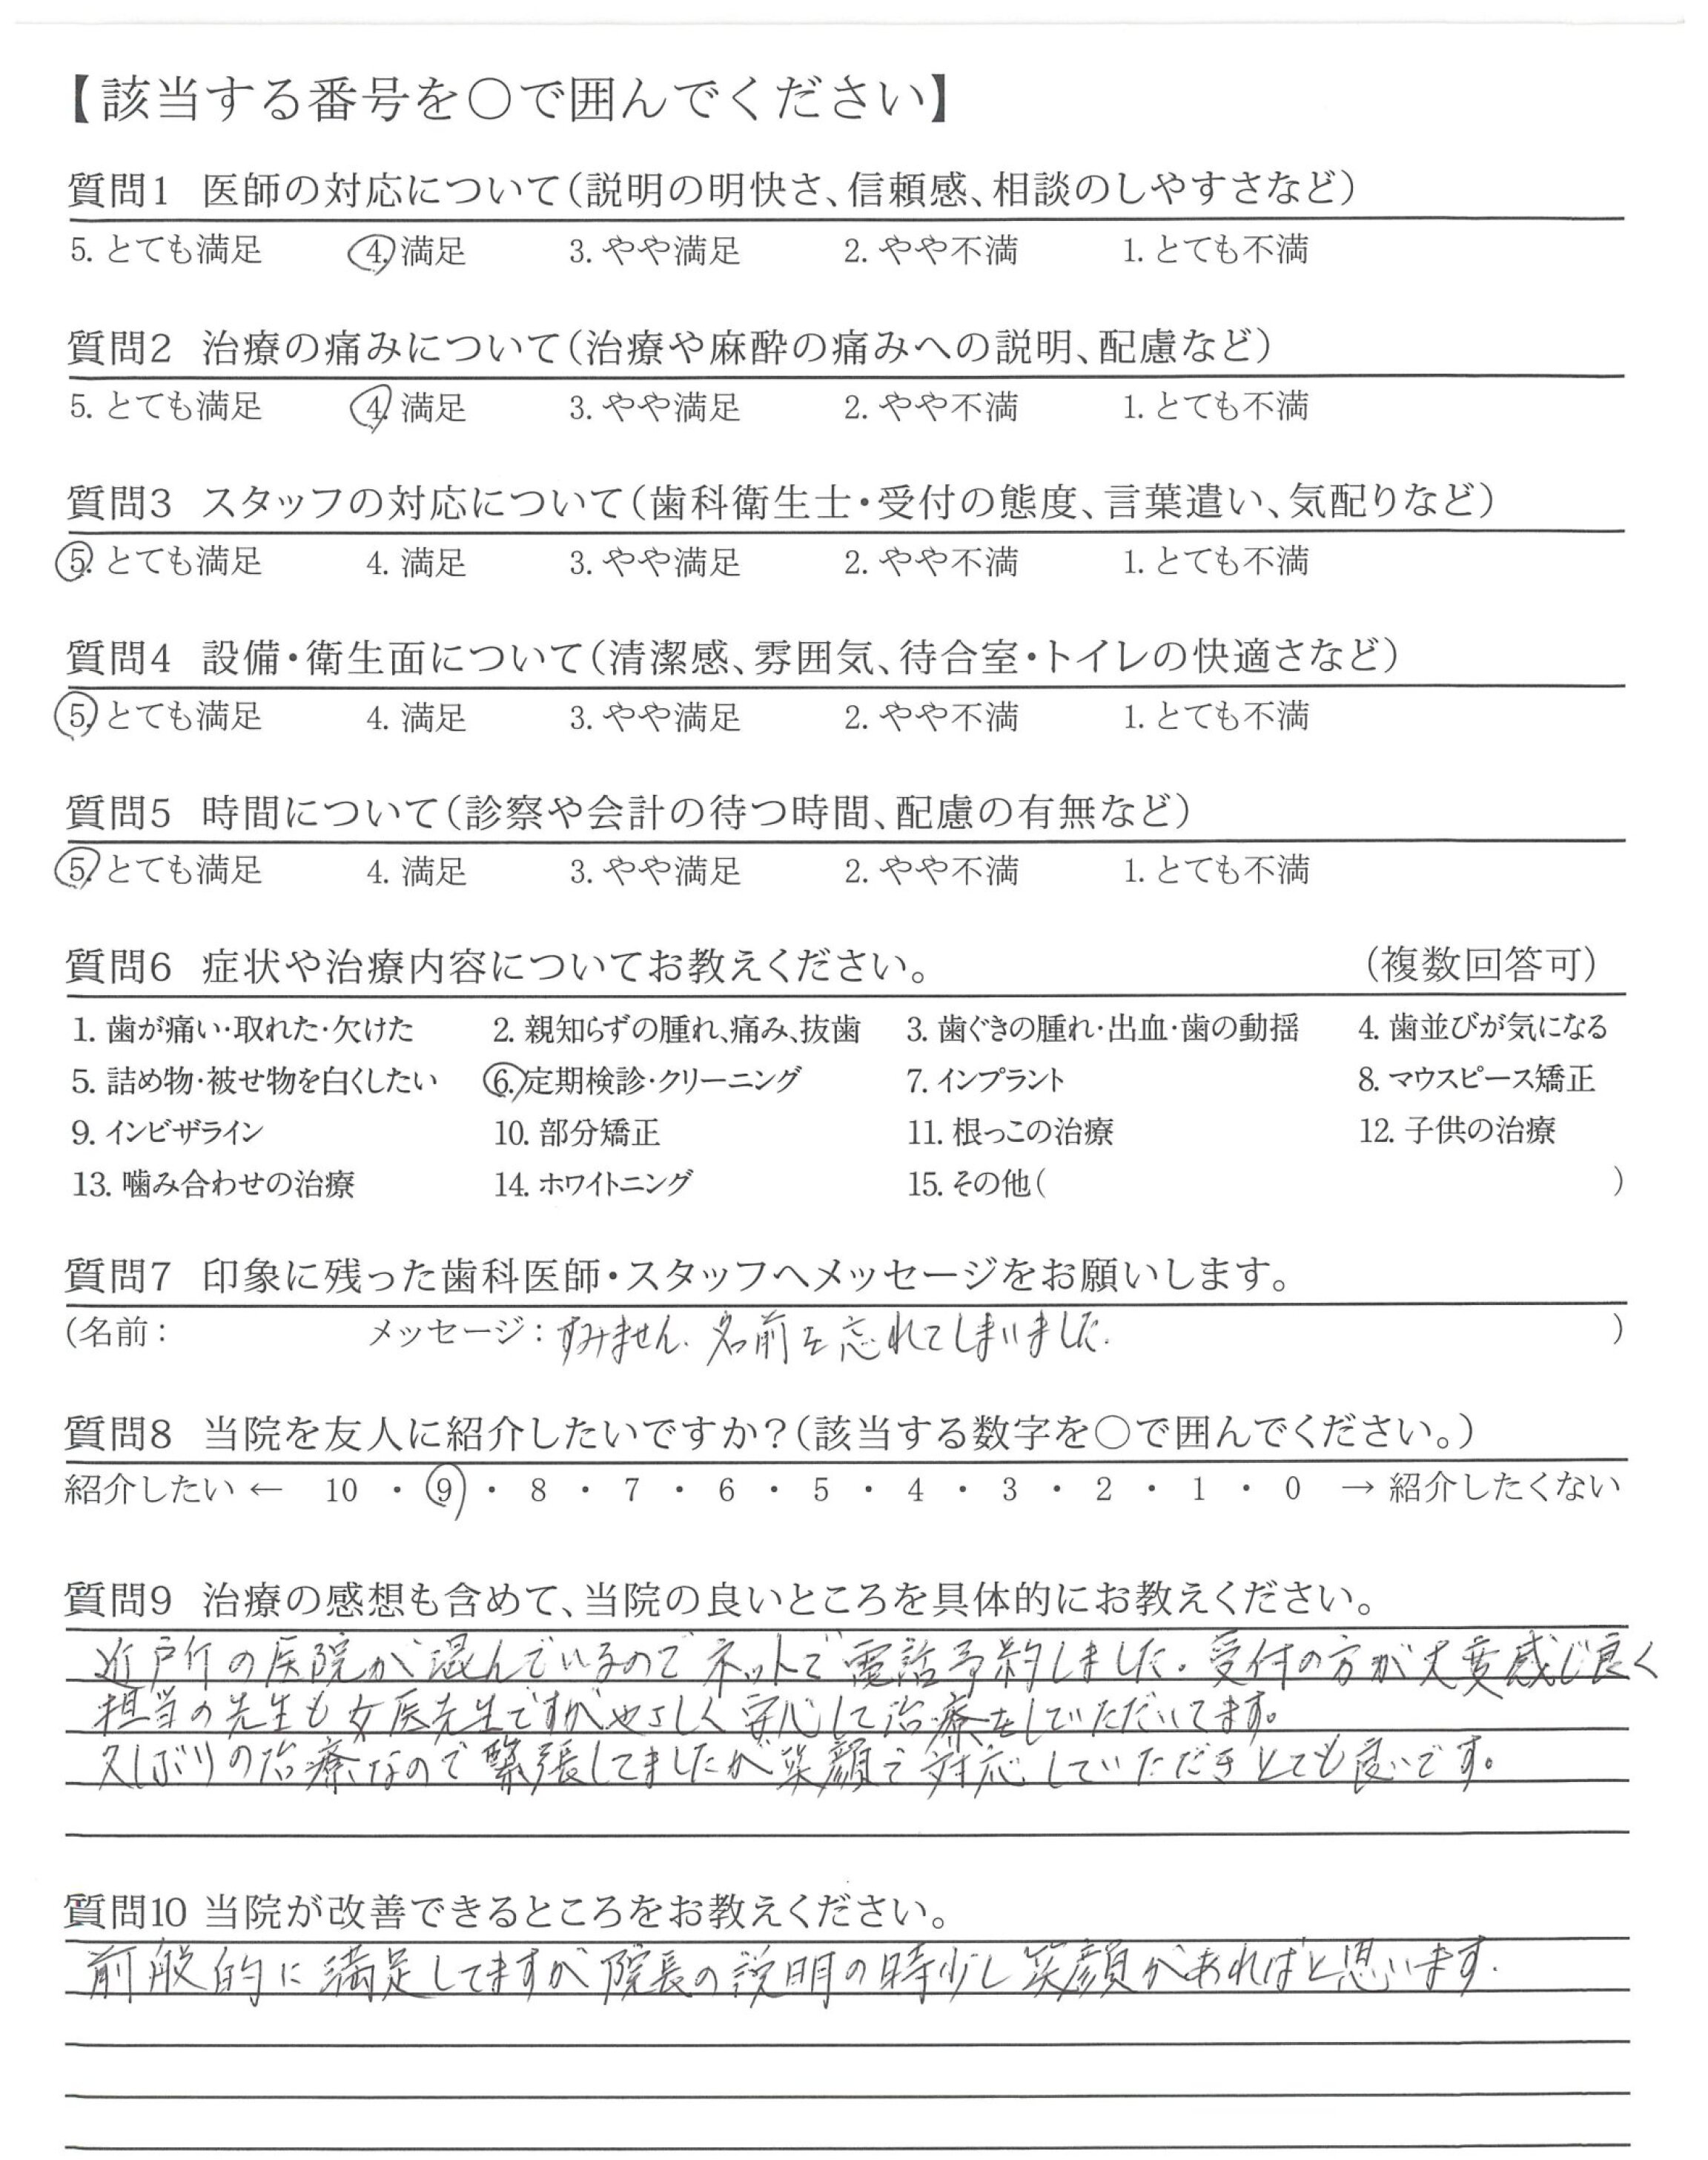 【該当する番号を○で囲んでください】
質問1 医師の対応について(説明の明快さ、信頼感、相談のしやすさなど)
5. とても満足 4. 満足 3. やや満足 2. やや不満 1. とても不満
質問2 治療の痛みについて(治療や麻酔の痛みへの説明、配慮など)
5. とても満足 4. 満足 3. やや満足 2. やや不満 1. とても不満
質問3 スタッフの対応について(歯科衛生士・受付の態度、言葉遣い、気配りなど)
5. とても満足 4. 満足 3. やや満足 2. やや不満 1. とても不満
質問4 設備・衛生面について(清潔感、雰囲気、待合室・トイレの快適さなど)
5. とても満足 4. 満足 3. やや満足 2. やや不満 1. とても不満
質問5 時間について(診察や会計の待つ時間、配慮の有無など)
5. とても満足 4. 満足 3. やや満足 2. やや不満 1. とても不満
質問6 症状や治療内容についてお教えください。 (複数回答可)
1. 歯が痛い・取れた・欠けた 2. 親知らずの腫れ、痛み、抜歯 3. 歯ぐきの腫れ・出血・歯の動揺 4. 歯並びが気になる
5. 詰め物・被せ物を白くしたい 6. 定期検診・クリーニング 7. インプラント 8. マウスピース矯正
9. インビザライン 10. 部分矯正 11. 根っこの治療 12. 子供の治療
13. 噛み合わせの治療 14. ホワイトニング 15. その他( )
質問7 印象に残った歯科医師・スタッフへメッセージをお願いします。
(名前: メッセージ: すみません. 名前を忘れてしまいました. )
質問8 当院を友人に紹介したいですか?(該当する数字を○で囲んでください。)
紹介したい ← 10 ・ 9 ・ 8 ・ 7 ・ 6 ・ 5 ・ 4 ・ 3 ・ 2 ・ 1 ・ 0 → 紹介したくない
質問9 治療の感想も含めて、当院の良いところを具体的にお教えください。
近所の医院が混んでいるのでネットで電話予約しました。受付の方が大変感じ良く
担当の先生も女医先生ですがやさしく安心して治療をしていただいてます。
久しぶりの治療なので緊張してましたが笑顔で対応していただきとても良いです。
質問10 当院が改善できるところをお教えください。
前般的に満足してますが院長の説明の時少し笑顔があればと思います.